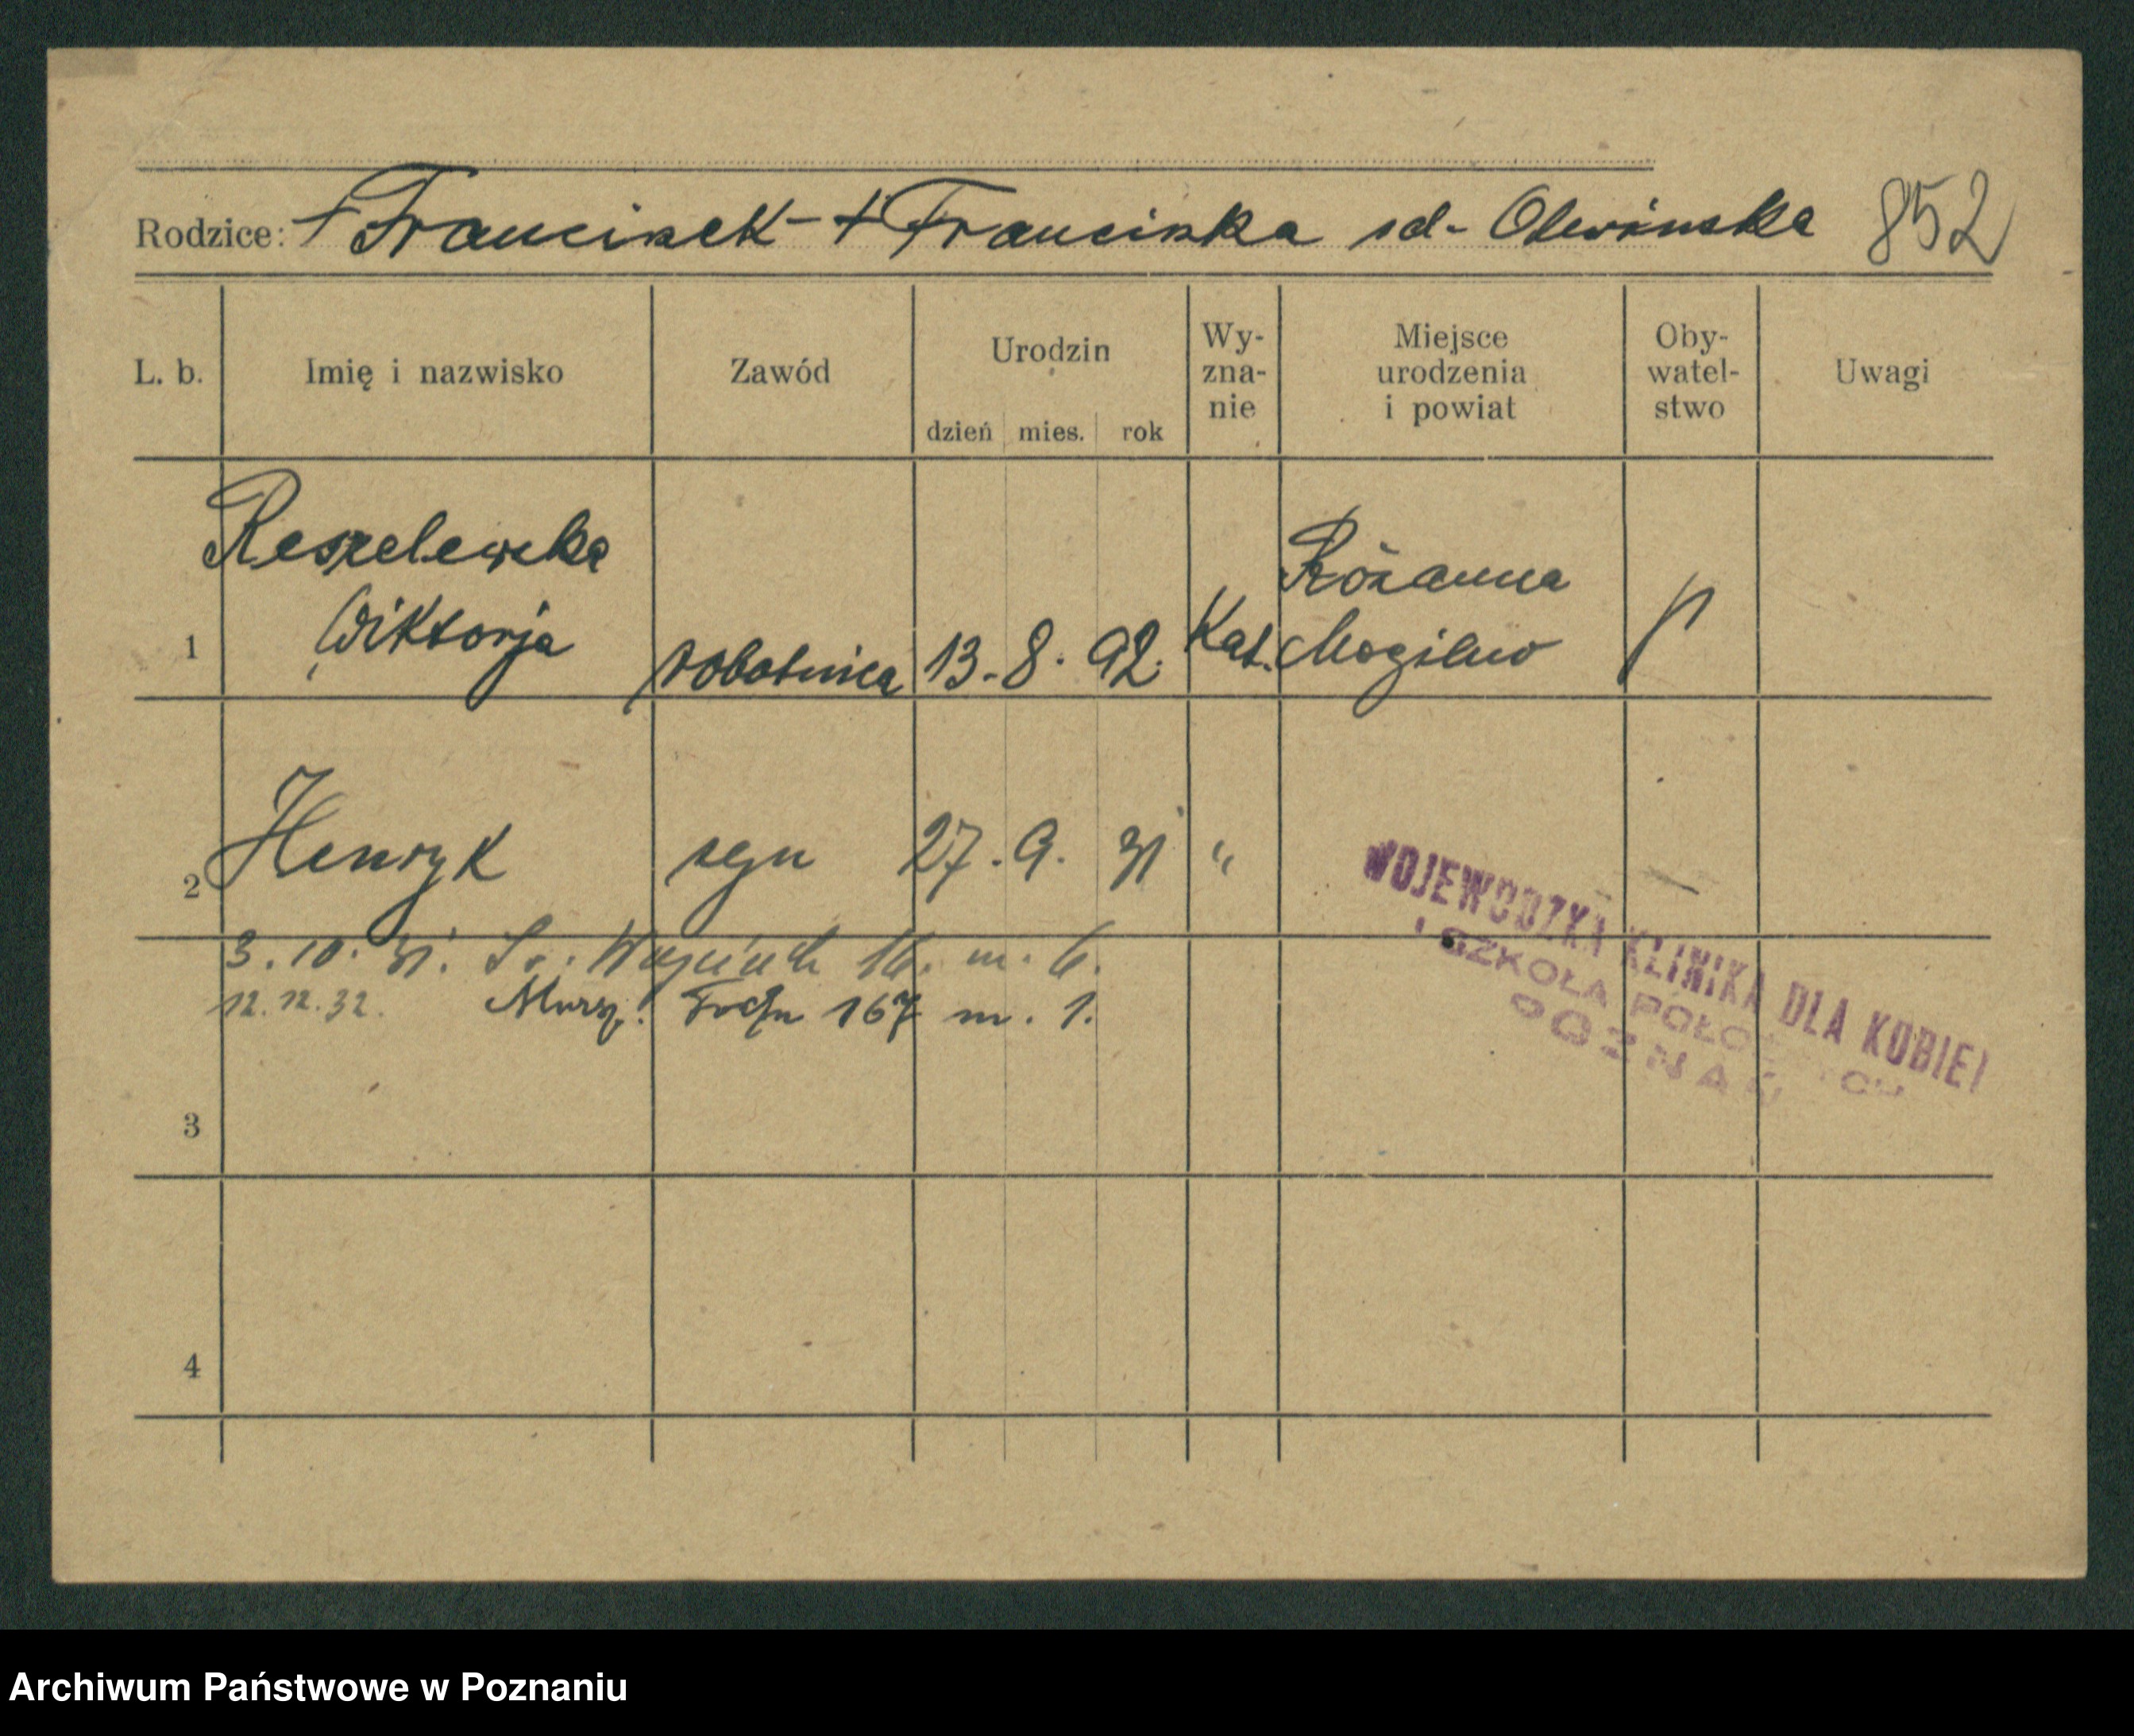 Rodzice: + Franciszek - + Franciszka zd. Olewińska 852
L. b. Imię i nazwisko Zawód Urodzin dzień mies. rok Wy-zna-nie Miejsce urodzenia i powiat Oby-watel-stwo Uwagi
Reszelewska Różanna
1 Wiktorja robotnica 13. 8. 92. Kat. Mogilno p
2 Henryk syn 27. 9. 31 "
WOJEWÓDZKA KLINIKA DLA KOBIET
I SZKOŁA POŁOŻNYCH
POZNAŃ
3. 10. 31. Św. Wojciech 16. m. 6.
12. 12. 32. Marsz. Focha 167 m. 1.
3
4
Archiwum Państwowe w Poznaniu